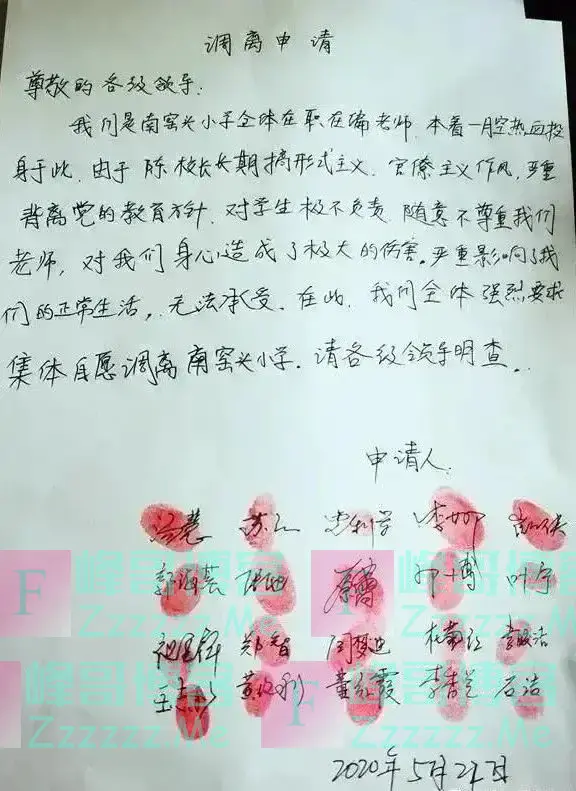 调离申请
尊敬的各级领导:
我们是南窑头小学全体在职在编老师.本着一腔热血投
身于此.由于陈校长长期搞形式主义.官僚主义作风,严重
背离党的教育方针.对学生极不负责.随意不尊重我们
老师,对我们身心造成了极大的伤害。严重影响了我
们的正常生活,无法承受.在此.我们全体强烈要求
集体自愿调离南窑头小学.请各级领导明查。
申请人:
李娜
郭海芸 叶宁
郑智 闫梦迪 杜菊红
董红霞 李春兰 石洁
2020年5月21日
F 峰哥博客
Zzzzzz.Me
F 峰哥博客
Zzzzzz.Me
F 峰哥博客
Zzzzzz.Me
F 峰哥博客
Zzzzzz.Me